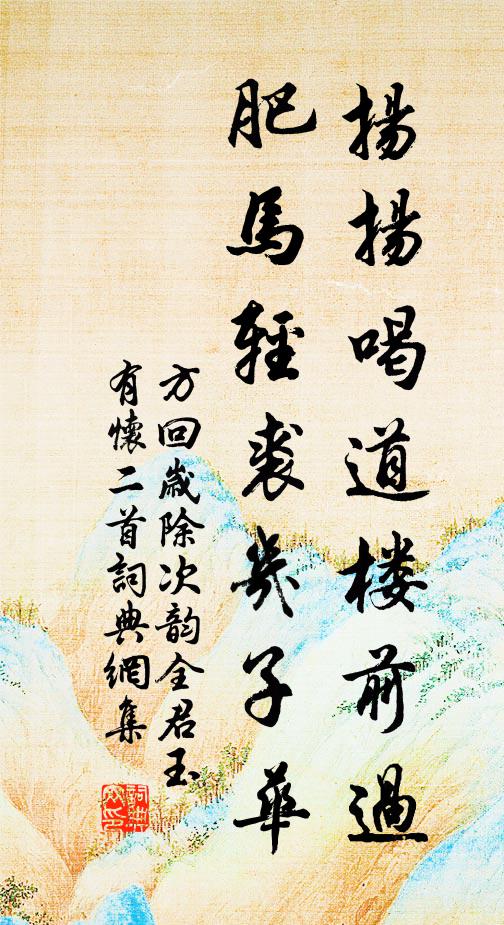 揚揚喝道楼前過
肥馬輕裘幾子華
方回歲除次韵全君玉
有懷二首詞典網集